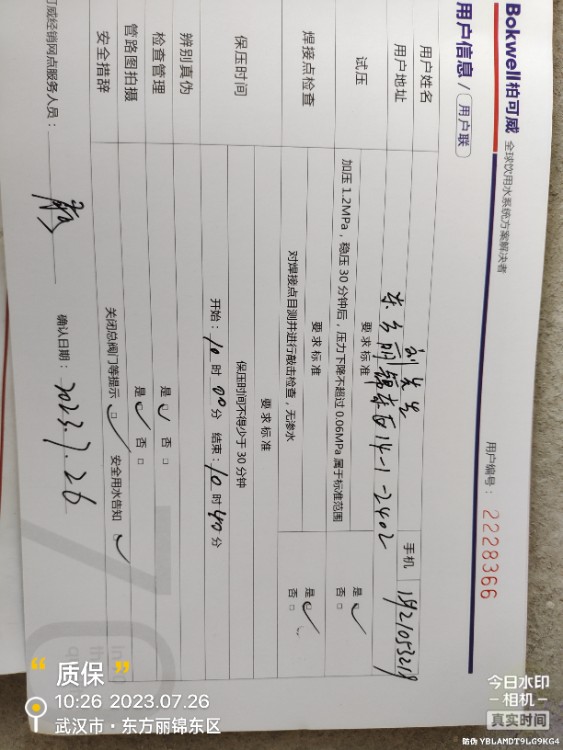 Bokwell柏可威 全球饮用水系统方案解决者
用户信息 / 用户联
用户编号：2228366
用户姓名 刘先生 手机
用户地址 东方丽锦东区14-1-2402
试压 要求标准
加压 1.2MPa，稳压 30 分钟后，压力下降不超过 0.06MPa 属于标准范围
是
否
焊接点检查 要求标准
对焊接点目测并进行敲击检查，无渗水
是
否
保压时间 要求标准
保压时间不得少于 30 分钟
开始：10 时 00 分 结束：10 时 40 分
辨别真伪
检查管理 是 否
管路图拍摄 是 否
安全措辞 关闭总阀门等提示 安全用水告知
可威经销网点服务人员：
确认日期：2023.7.26
“质保”
10:26 2023.07.26
武汉市·东方丽锦东区
今日水印
相机
真实时间
防伪 YBLAMDT9LG9KG4